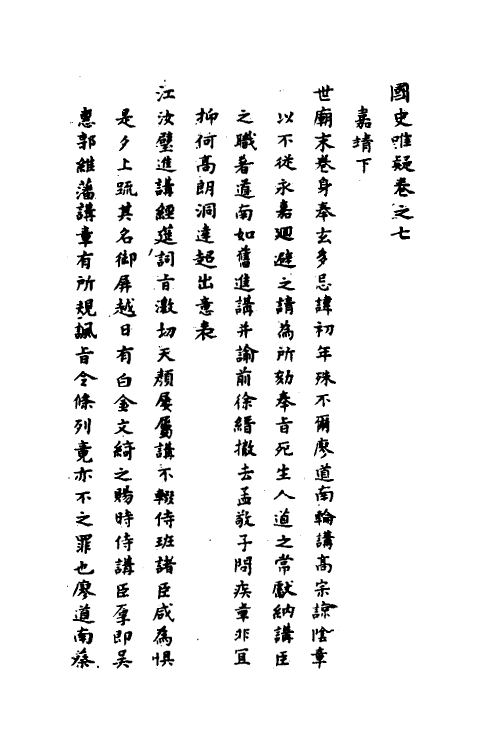 國史唯疑卷之七
嘉靖下
世廟末巻身奉玄多忌諱初年殊不爾廖道南輪講高宗諒陰章
以不從永嘉廻避之請為所劾奉旨死生人道之常獻納講臣
之職着道南如舊進講并諭前徐縉撤去孟敬子問疾章非宜
抑何高朗洞達超出意表
江汝璧進講經筵詞旨激切天顏屢屬講不輟侍班諸臣咸為惧
是夕上疏其名御屏越日有白金文綺之賜時侍講臣厚即吳
惠郭維藩講章有所規諷旨令條列竟亦不之罪也廖道南蔡